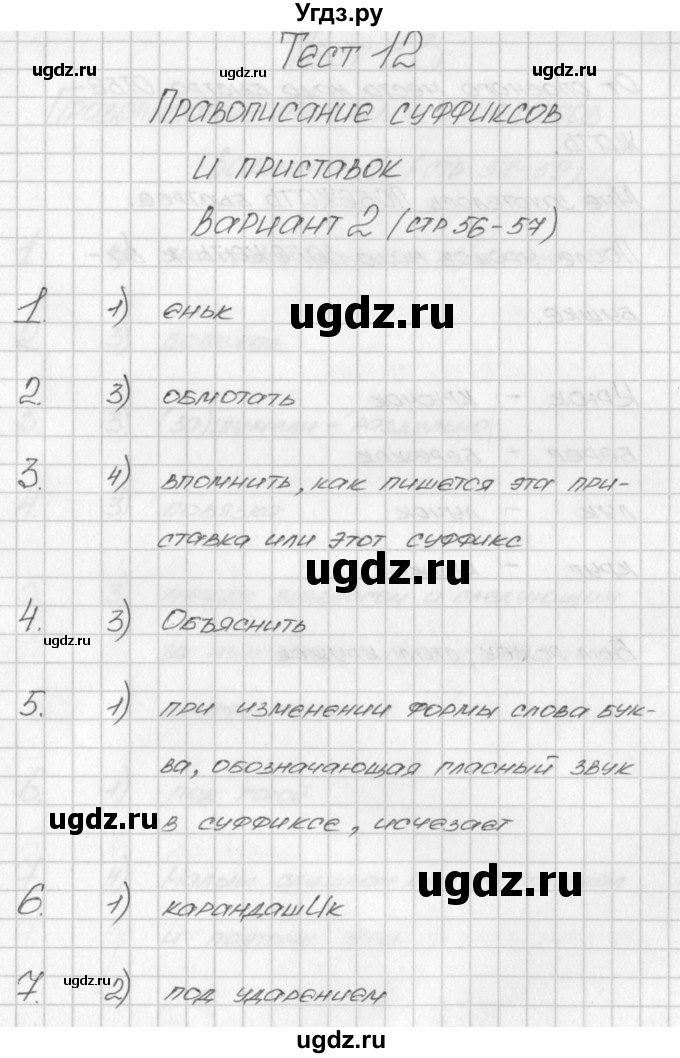 Угдз.ру
Тест 12
ugdz.ru ugdz.ru ugdz.ru
Правописание суффиксов
и приставок
Вариант 2 (стр 56-57)
1. 1) еньк
ugdz.ru
2. 3) обмотать
3. 4) впомнить, как пишется эта при-
ставка или этот суффикс
ugdz.ru
4. 3) Объяснить
ugdz.ru
5. 1) при изменении формы слова бук-
ва, обозначающая гласный звук
ugdz.ru
в суффиксе, исчезает
ugdz.ru
6. 1) карандашИк
7. 2) под ударением
ugdz.ru ugdz.ru
ugdz.ru